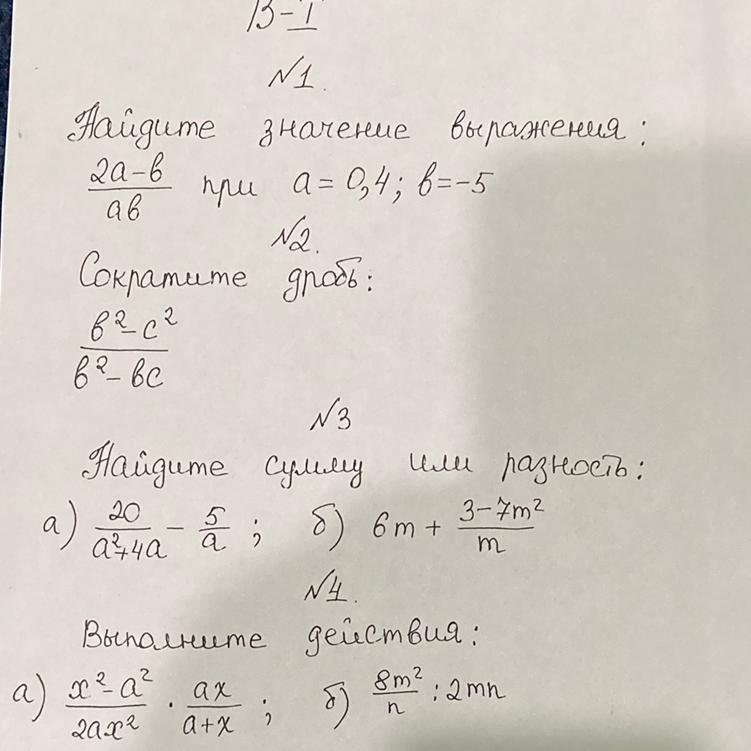 В-I
№1.
Найдите значение выражения:
(2a-в)/(aв) при a=0,4; в=-5
№2.
Сократите дробь:
(в²-c²)/(в²-вc)
№3
Найдите сумму или разность:
а) 20/(a²+4a) - 5/a; б) 6m + (3-7m²)/m
№4.
Выполните действия:
а) (x²-a²)/(2ax²) · ax/(a+x); б) 8m²/n : 2mn